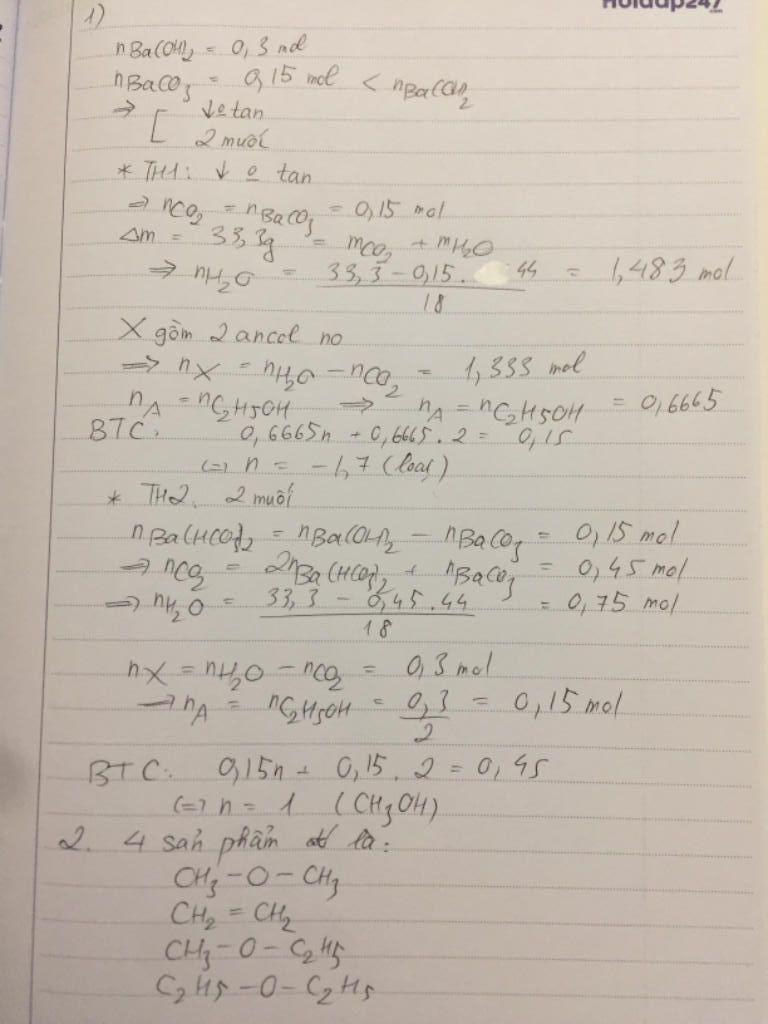 Hoidap247
1)
nBa(OH)2 = 0,3 mol
nBaCO3 = 0,15 mol < nBa(OH)2
⇒ [ ↓ o tan
2 muối
* TH1: ↓ o tan
⇒ nCO2 = nBaCO3 = 0,15 mol
Δm = 33,3g = mCO2 + mH2O
⇒ nH2O = (33,3 - 0,15 . 44) / 18 = 1,483 mol
X gồm 2 ancol no
⇒ nX = nH2O - nCO2 = 1,333 mol
nA = nC2H5OH ⇒ nA = nC2H5OH = 0,6665
BTC: 0,6665n + 0,6665.2 = 0,15
(=) n = -1,7 (loại)
* TH2. 2 muối
nBa(HCO3)2 = nBa(OH)2 - nBaCO3 = 0,15 mol
⇒ nCO2 = 2nBa(HCO3)2 + nBaCO3 = 0,45 mol
⇒ nH2O = (33,3 - 0,45.44) / 18 = 0,75 mol
nX = nH2O - nCO2 = 0,3 mol
→ nA = nC2H5OH = 0,3 / 2 = 0,15 mol
BTC: 0,15n + 0,15.2 = 0,45
(=) n = 1 (CH3OH)
2. 4 sản phẩm là:
CH3-O-CH3
CH2=CH2
CH3-O-C2H5
C2H5-O-C2H5